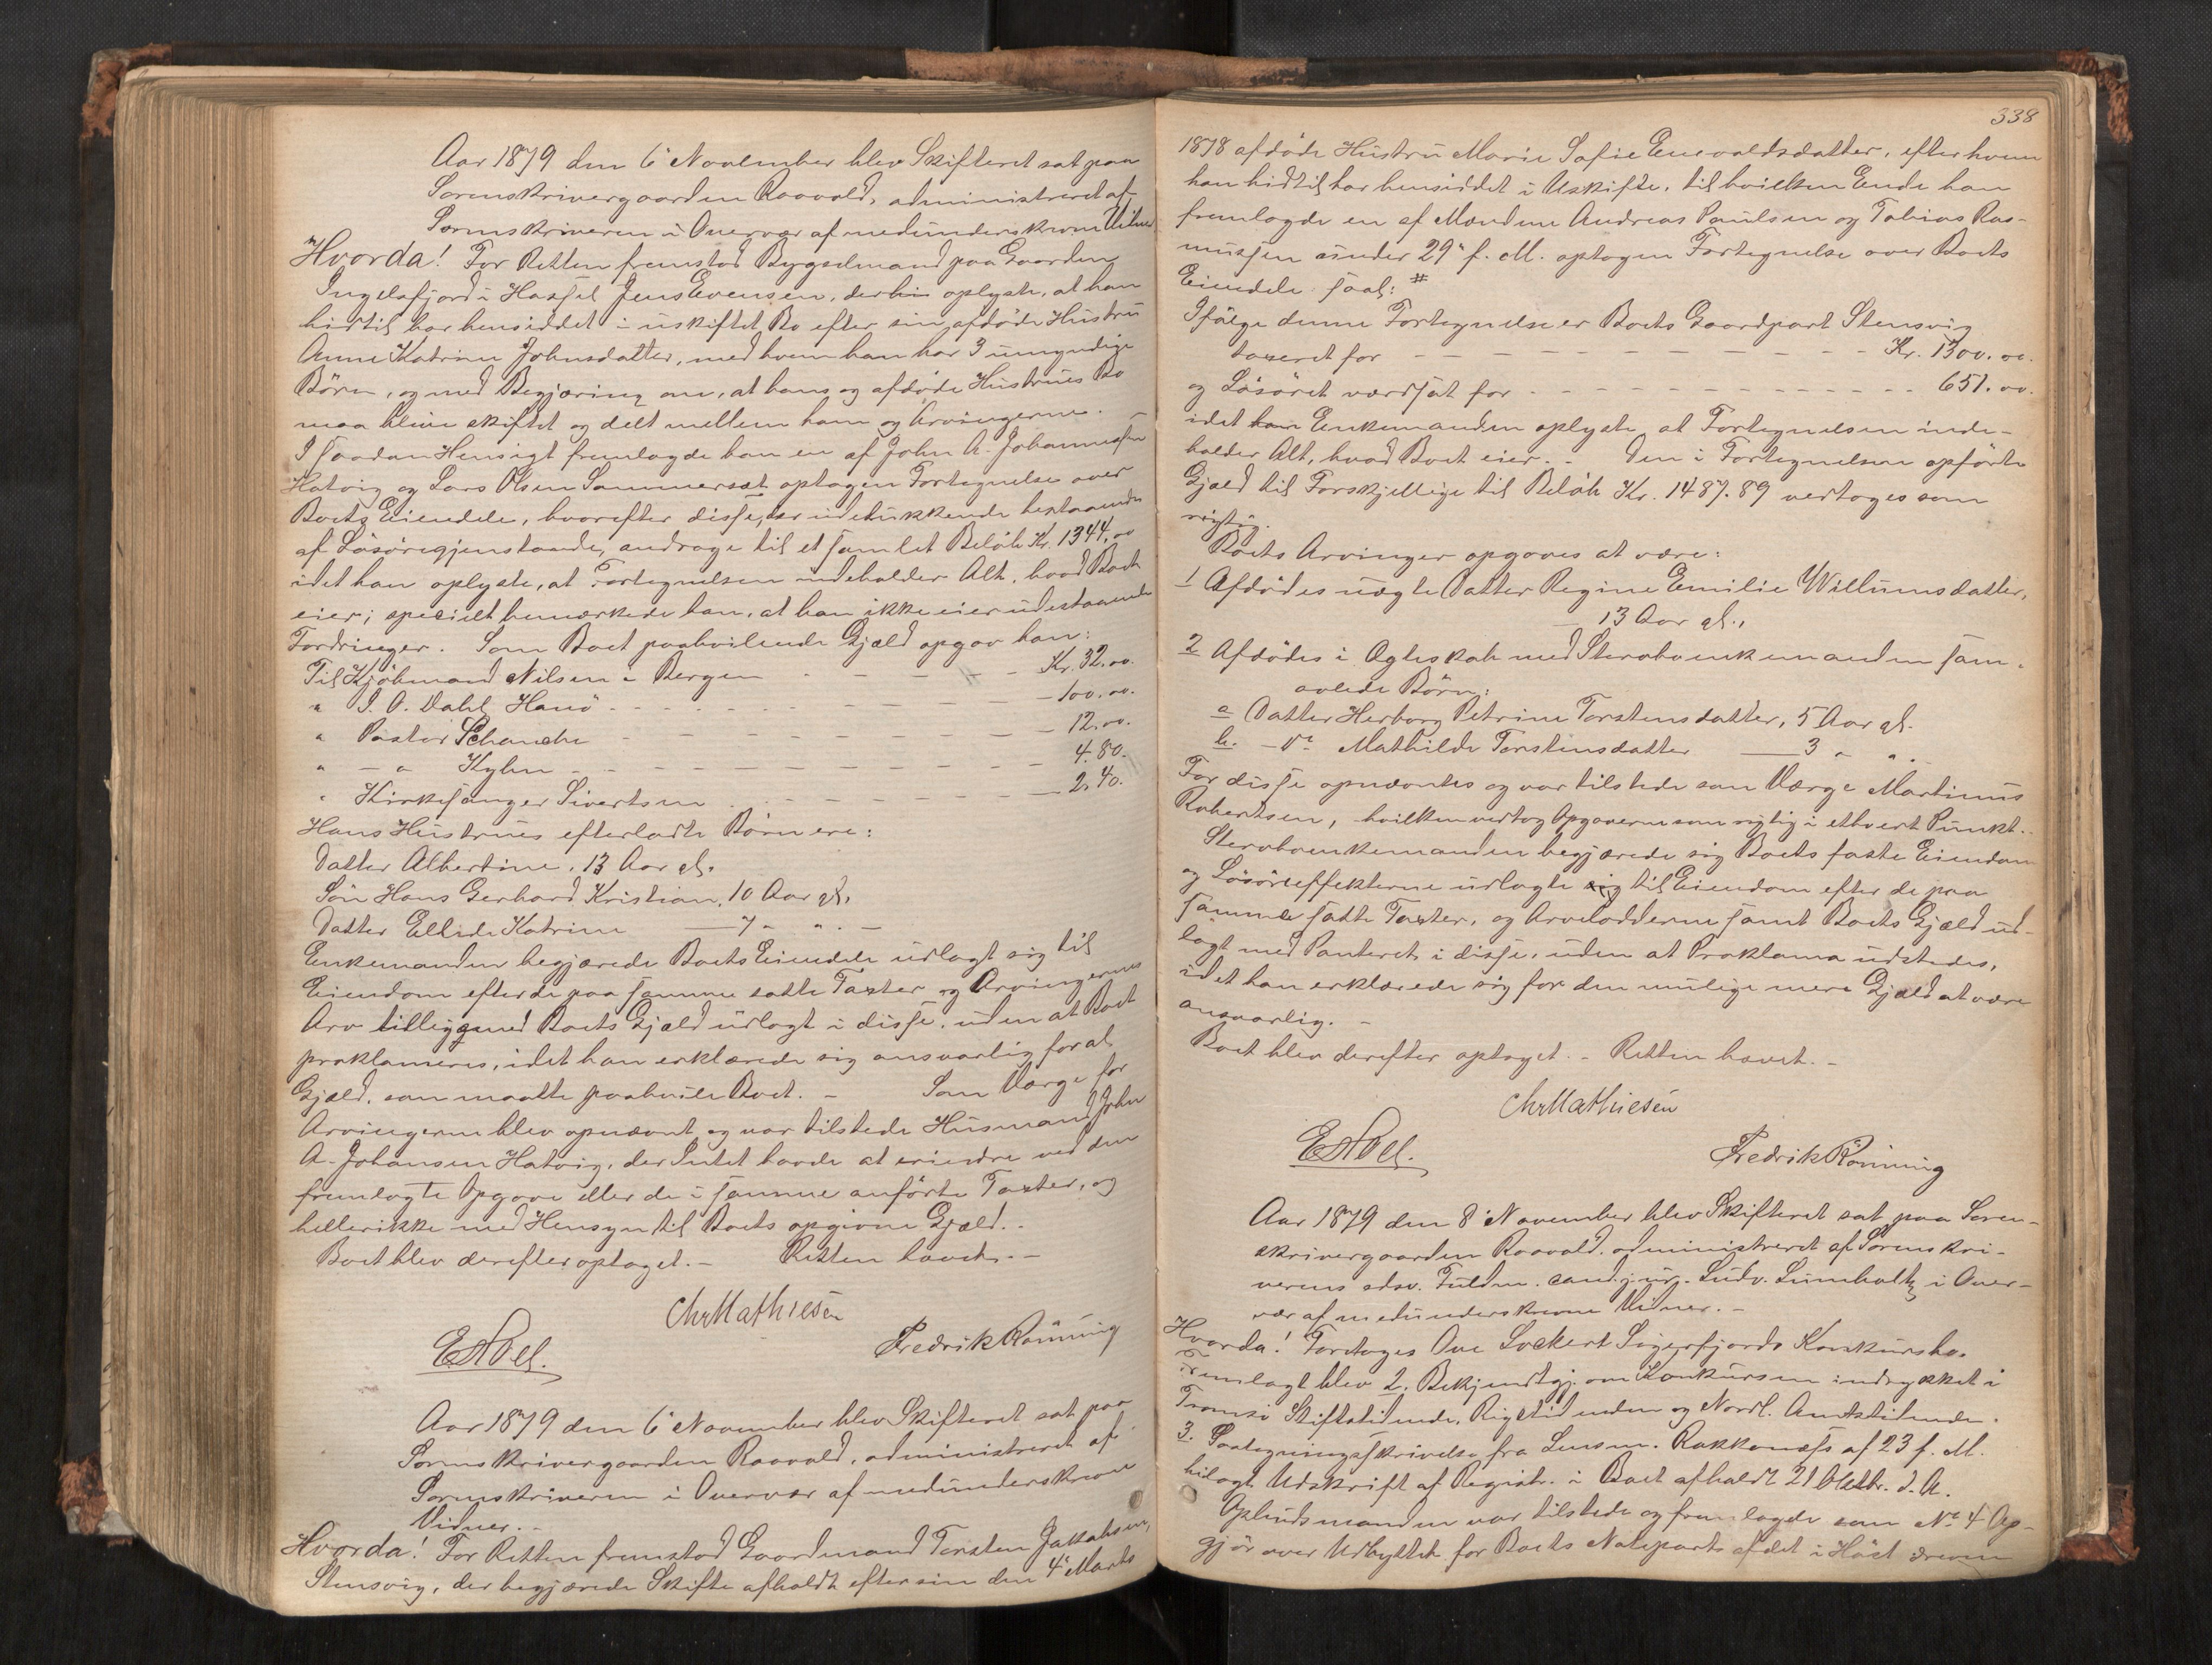 Aar 1879 den 6' November blev Skifteret sat paa
Sorenskrivergaarden Raavold, administreret af
Sorenskriveren i Overvær af medunderskrevne Vidner
Hvorda! For Retten fremstod Bygselmand paa Gaarden
Ingelsfjord i Hassel Jens Evensen, der oplyste, at han
hidtil har hensiddet i uskiftet Bo efter sin afdøde Hustru
Anne Katrine Johnsdatter, med hvem han har 3 umyndige
Børn, og med Begjæring om, at hans og afdøde Hustrues Bo
maa blive skiftet og delt mellem ham og Arvingerne.
I saadan Hensigt fremlagde han en af John A. Johannessen
Hatvig og Lars Olsen Sommersæt optagen Fortegnelse over
Boets Eiendele, hvorefter disse, der udelukkende bestaaende
af Løsøregjenstande, andrage til et samlet Beløb Kr. 1344,00
idet han oplyste, at Fortegnelsen indeholder Alt, hvad Boet
eier; specielt bemærkede han, at han ikke eier udestaaende
Fordringer. Som Boet paahvilende Gjæld opgav han:
Til Kjøbmand Nilsen i Bergen - - - - Kr. 32,00.
" I. O. Dahl, Hanø - - - - - 100,00.
" Pastor Schanche - - - - - 12,00.
" - " Kyhn - - - - - 4.80.
" Kirkesanger Sivertsen - - - - - 2,40.
Hans Hustrues efterladte Børn ere:
Datter Albertine, 13 Aar gl.
Søn Hans Gerhard Kristian, 10 Aar gl.
Datter Ellede Katrine — 7 " " . -
Enkemanden begjærede Boets Eiendele udlagt sig til
Eiendom efter de paa samme satte Taxter og Arvingernes
Arv tilligemed Boets Gjæld udlagt i disse, uden at Boet
proklameres, idet han erklærede sig ansvarlig for al
Gjæld, som maatte paahvile Boet. - Som Værge for
Arvingerne blev opnævnt og var tilstede Husmand John
A. Johansen Hatvig, der Intet havde at erindre ved den
fremlagte Opgave eller de i samme anførte Taxter, og
heller ikke med Hensyn til Boets opgivne Gjæld. -
Boet blev derefter optaget. - Retten hævet. -
Chr Mathiesen
E Abel. Fredrik Rønning
Aar 1879 den 6' November blev Skifteret sat paa
Sorenskrivergaarden Raavold, administreret af
Sorenskriveren i Overvær af medunderskrevne
Vidner. -
Hvorda! For Retten fremstod Gaardmand Torsten Jakobsen,
Stensvig, der begjærede Skifte afholdt efter sin den 4' Marts
338
1878 afdøde Hustru Marie Sofie Enevaldsdatter, efter hvem
han hidtil har hensiddet i Uskifte, til hvilken Ende han
fremlagde en af Mændene Andreas Paulsen og Tobias Ras-
mussen under 29' f. M. optagen Fortegnelse over Boets
Eiendele saal: #
Ifølge denne Fortegnelse er Boets Gaardpart Stensvig
taxeret for - - - - - - - Kr. 1300.00.
og Løsøret værdsat for - - - - - - 651.00.
idet han Enkemanden oplyste, at Fortegnelsen inde-
holder Alt, hvad Boet eier. - Den i Fortegnelsen opførte
Gjæld til Forskjellige til Beløb Kr. 1487.89 vedtoges som
rigtig.
Boets Arvinger opgaves at være:
1 Afdødes uægte Datter Regine Emilie Willumsdatter,
13 Aar gl.,
2 Afdødes i Ægteskab med Stervboenkemanden sam-
avlede Børn:
a Datter Herborg Petrine Torstensdatter, 5 Aar gl.
b. - Do Mathilde Torstensdatter — 3 " " . -
For disse opnævntes og var tilstede som Værge Martinus
Robertsen, hvilken vedtog Opgaverne som rigtig i ethvert Punkt. -
Stervboenkemanden begjærede sig Boets faste Eiendom
og Løsøreeffekterne udlagte sig til Eiendom efter de paa
samme satte Taxter, og Arvelodderne samt Boets Gjæld ud-
lagt med Panteret i disse, uden at Proklama udstedes,
idet han erklærede sig for den mulige mere Gjæld at være
ansvarlig. -
Boet blev derefter optaget. - Retten hævet. -
Chr Mathiesen
E Abel. Fredrik Rønning
Aar 1879 den 8' November blev Skifteret sat paa Soren-
skrivergaarden Raavold, administreret af Sorenskri-
verens edsv. Fuldm. cand. jur. Ludv. Lumholtz i Over-
vær af medunderskrevne Vidner. -
Hvorda! Foretoges Ove Lockert Sigerfjords Konkursbo.
Fremlagt blev 2. Bekjendtgj. om Konkursen indrykket i
Tromsø Stiftstidende, Rigstidenden og Nordl. Amtstidende.
3. Paategningsskrivelse fra Lensm. Rakkenæss af 23 f. M.
bilagt Udskrift af Registr. i Boet afholdt 21 Oktbr. d. A.
Opbudsmanden var tilstede og fremlagde som No 4 Op-
gjør over Udbyttet for Boets Notepart af det i Høst drevne